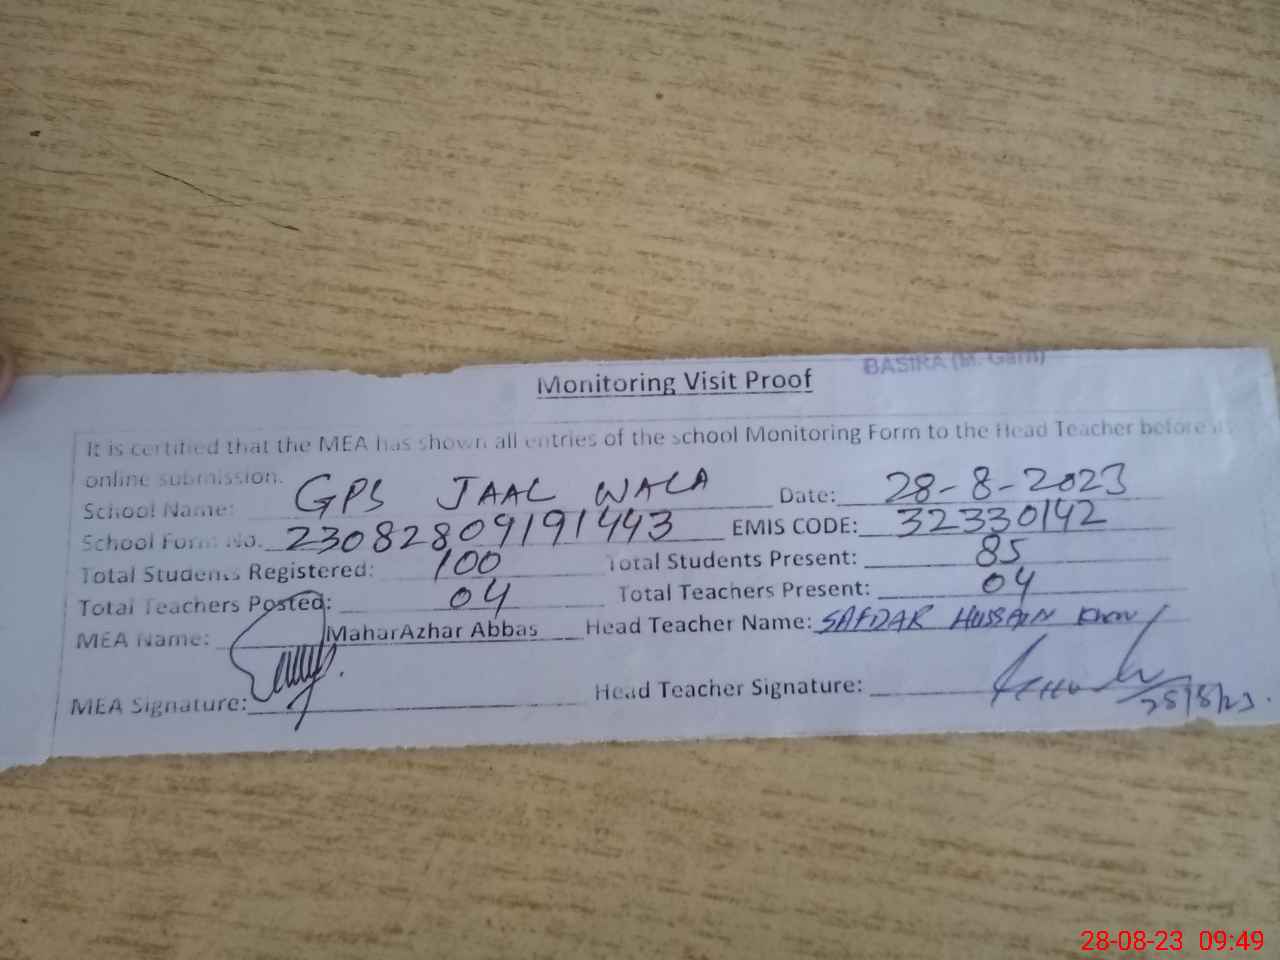 BASIRA (M. Garh)
Monitoring Visit Proof
It is certified that the MEA has shown all entries of the school Monitoring Form to the Head Teacher before
online submission.
School Name: GPS JAAL WALA Date: 28-8-2023
School Form No. 23082809191443 EMIS CODE: 32330142
Total Students Registered: 100 Total Students Present: 85
Total Teachers Posted: 04 Total Teachers Present: 04
MEA Name: MaharAzhar Abbas Head Teacher Name: SAFDAR HUSSAIN Khan
MEA Signature: Head Teacher Signature:
28/8/23.
28-08-23 09:49